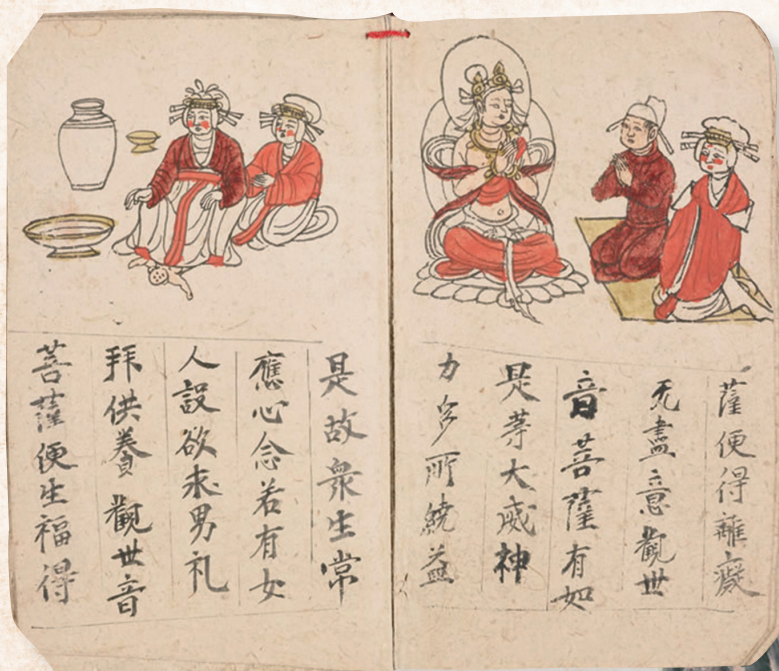 薩便得離癡
无盡意觀世
音菩薩有如
是等大威神
力多所饒益
是故衆生常
應心念若有女
人設欲求男礼
拜供養觀世音
菩薩便生福得